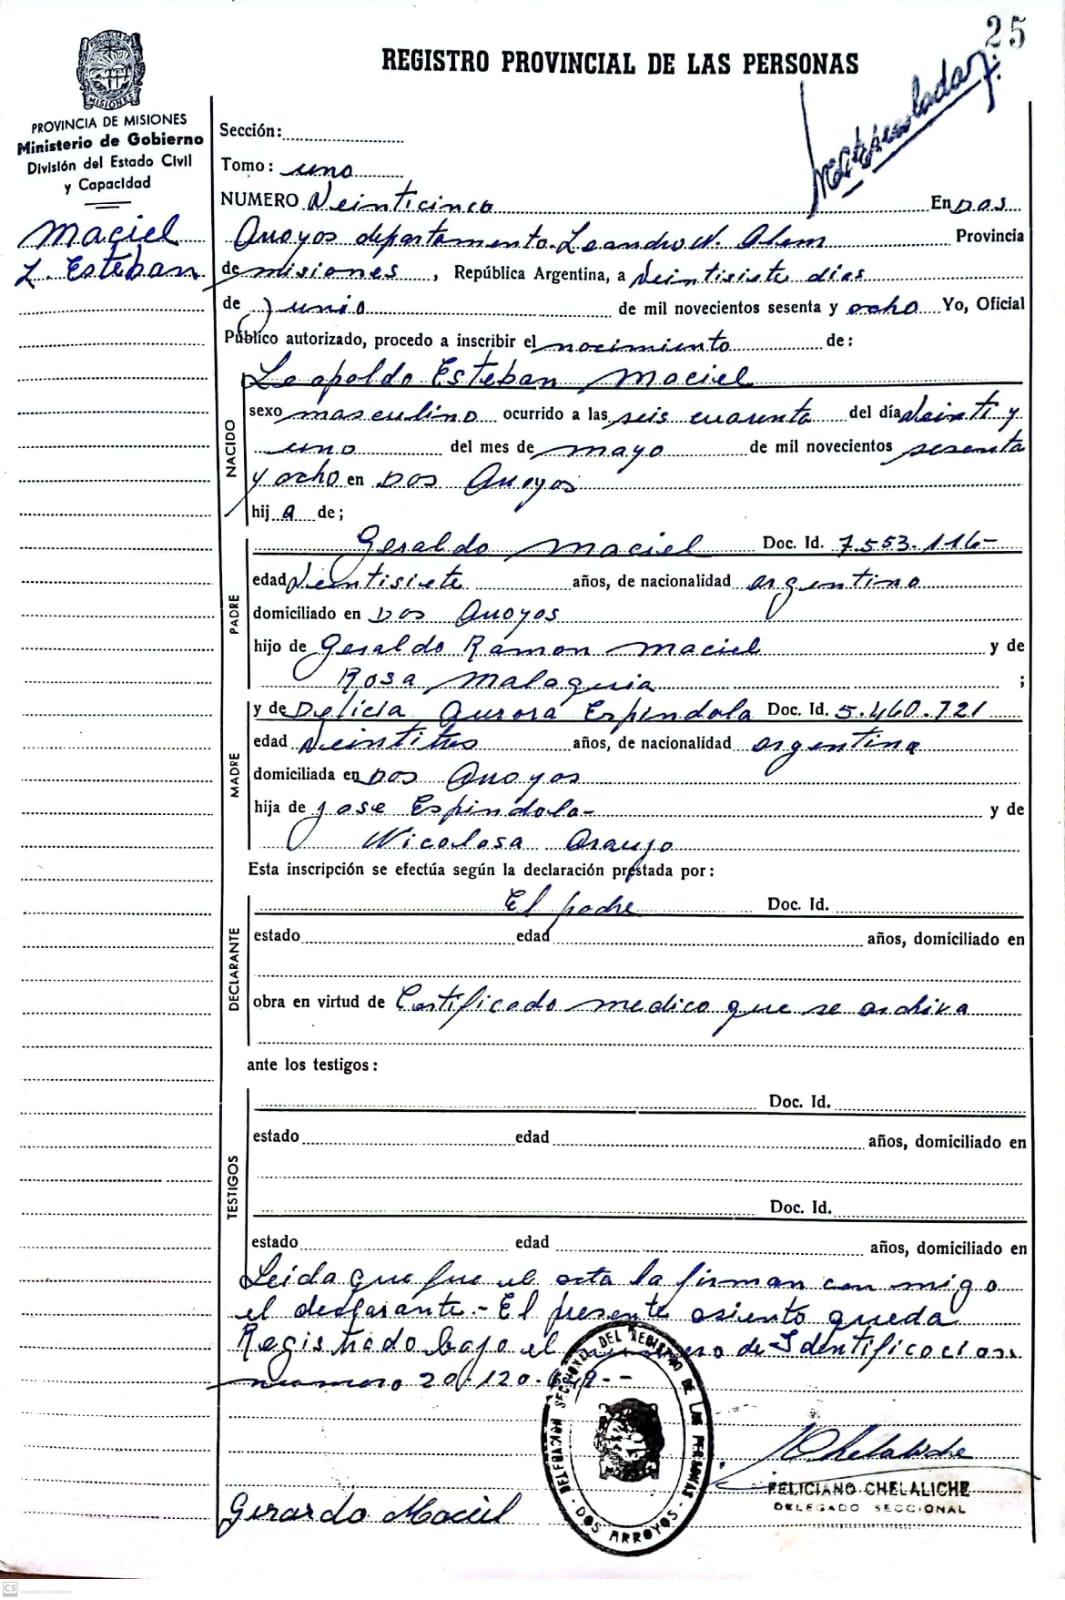 25
REGISTRO PROVINCIAL DE LAS PERSONAS
PROVINCIA DE MISIONES
Ministerio de Gobierno
División del Estado Civil
y Capacidad
Maciel
L. Esteban
Sección:
Tomo: uno
NUMERO Veinticinco En Dos
Arroyos departamento Leandro N. Alem Provincia
de misiones, República Argentina, a Veintisiete dias
de Junio de mil novecientos sesenta y ocho Yo, Oficial
Público autorizado, procedo a inscribir el nacimiento de:
Leopoldo Esteban Maciel
NACIDO
sexo masculino ocurrido a las seis cuarenta del día Veinti y
uno del mes de mayo de mil novecientos sesenta
y ocho en Dos Arroyos
hij o de;
PADRE
Geraldo Maciel Doc. Id. 7.553.116-
edad Veintisiete años, de nacionalidad argentino
domiciliado en Dos Arroyos
hijo de Geraldo Ramon Maciel y de
Rosa Malaquia ;
MADRE
y de Delicia Aurora Espindola Doc. Id. 5.460.721
edad Veintitres años, de nacionalidad argentina
domiciliada en Dos Arroyos
hija de Jose Espindola- y de
Nicolasa Araujo
Esta inscripción se efectúa según la declaración prestada por:
DECLARANTE
El padre Doc. Id.
estado edad años, domiciliado en
obra en virtud de Certificado medico que se archiva
ante los testigos:
TESTIGOS
Doc. Id.
estado edad años, domiciliado en
Doc. Id.
estado edad años, domiciliado en
Leida que fue el acta la firman con migo
el declarante.- El presente asiento queda
Registrado bajo el numero de Identificacion
numero 20.120.
DELEGACION SECCIONAL DEL REGISTRO DE LAS PERSONAS - DOS ARROYOS -
Chelaliche
FELICIANO CHELALICHE
DELEGADO SECCIONAL
Gerardo Maciel
CS